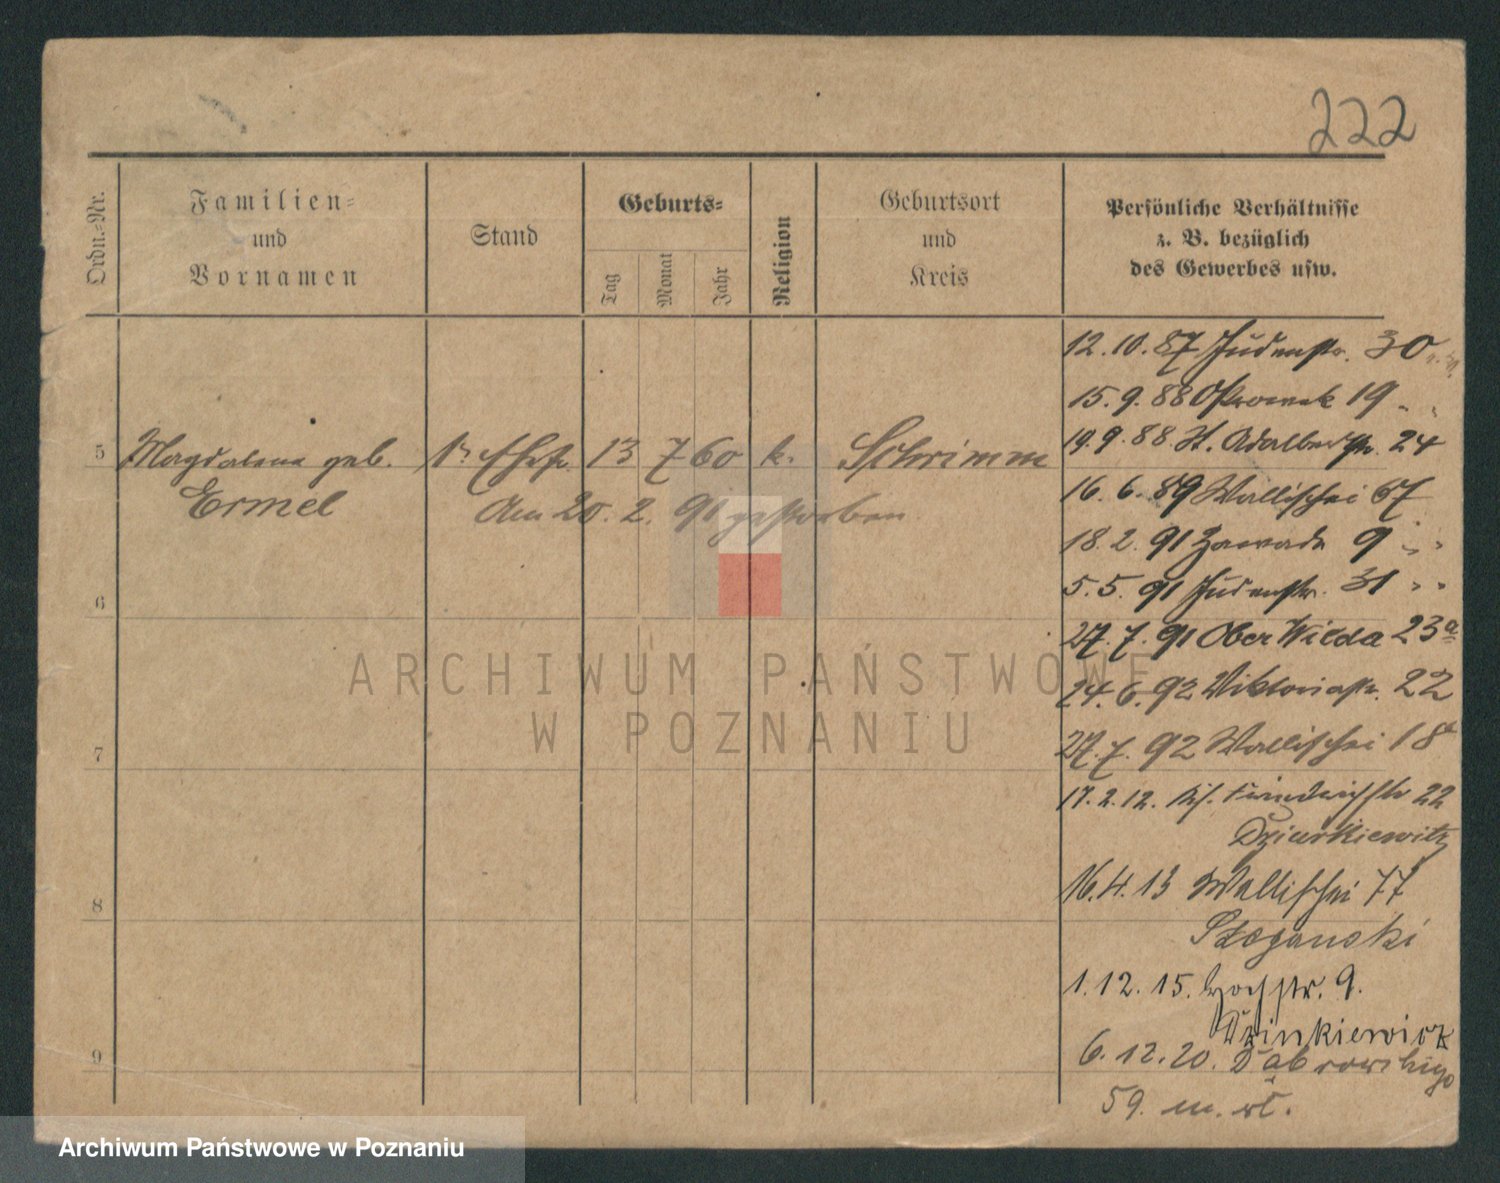 222
Ordn.=Nr.
Familien=
und
Vornamen
Stand
Geburts=
Tag
Monat
Jahr
Religion
Geburtsort
und
Kreis
Persönliche Verhältnisse
z. B. bezüglich
des Gewerbes usw.
12.10.87 Judenstr. 30
15.9.88 Ostrowek 19
5 Magdalena geb. 1. Ehefr. 13 7 60 k. Schrimm
Ermel
Am 20.2.91 gestorben
19.9.88 St. Adalbertstr. 24
16.6.89 Wallischei 67
18.2.91 Zawade 9
5.5.91 Judenstr. 31
6
27.7.91 Ober Wilda 23a
24.6.92 Viktoriastr. 22
27.7.92 Wallischei 18
7
17.2.12. Friedrichstr 22
Dziurkiewitz
16.4.13 Wallischei 77
8
1.12.15. Hochstr. 9.
9
6.12.20. Dąbrowskiego
59. m. wł.
ARCHIWUM PAŃSTWOWE
W POZNANIU
Archiwum Państwowe w Poznaniu